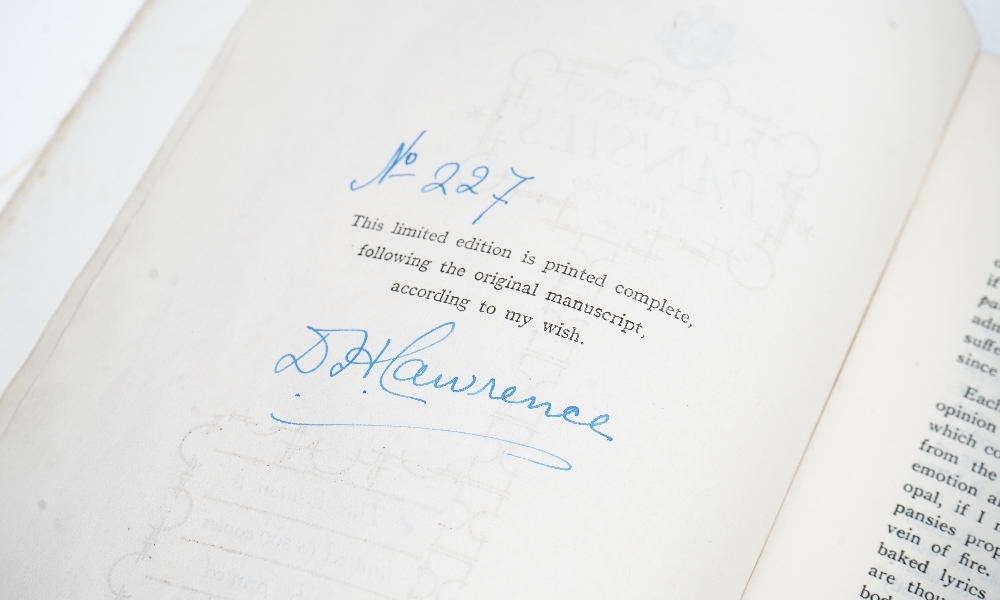 № 227
This limited edition is printed complete,
following the original manuscript,
according to my wish.
D. H. Lawrence
if
suffe
since
Each
opinion
which co
from the
emotion a
opal, if I
pansies prop
vein of fire.
baked lyrics
are thou